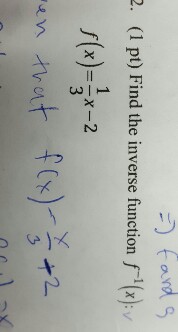 =) f and g
2. (1 pt) Find the inverse function f⁻¹(x):
f(x)=\frac{1}{3}x-2
en that f(x) = \frac{x}{3} + 2